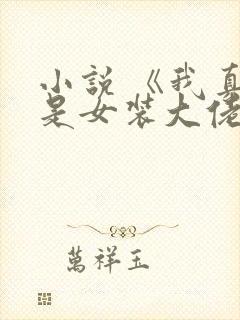 小說《我真
是女裝大佬
萬祥玉